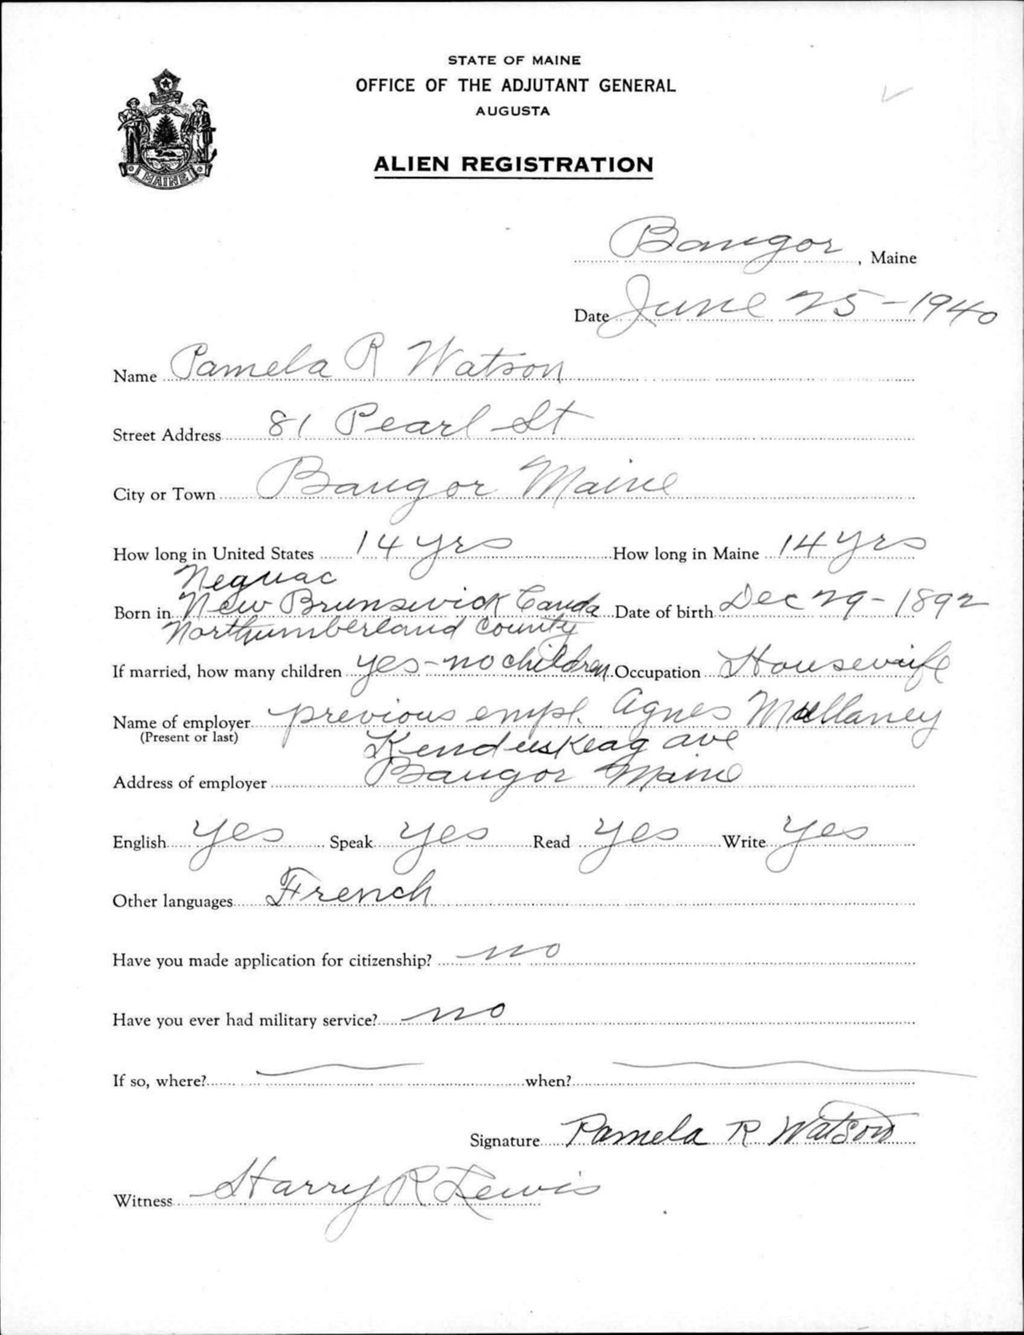 STATE OF MAINE
OFFICE OF THE ADJUTANT GENERAL
AUGUSTA
ALIEN REGISTRATION
MAINE
Bangor, Maine
Date June 25-1940
Name Pamela R Watson
Street Address 81 Pearl St
City or Town Bangor Maine
How long in United States 14 yrs How long in Maine 14 yrs
Neguac
Born in New Brunswick Canda Date of birth Dec 29-1892
Northumberland County
If married, how many children yes-no children Occupation Housewife
Name of employer previous empl. Agnes Mullaney
(Present or last)
Kenduskeag ave
Address of employer Bangor Maine
English yes Speak yes Read yes Write yes
Other languages French
Have you made application for citizenship? no
Have you ever had military service? no
If so, where? when?
Signature Pamela R Watson
Witness Harry R Lewis